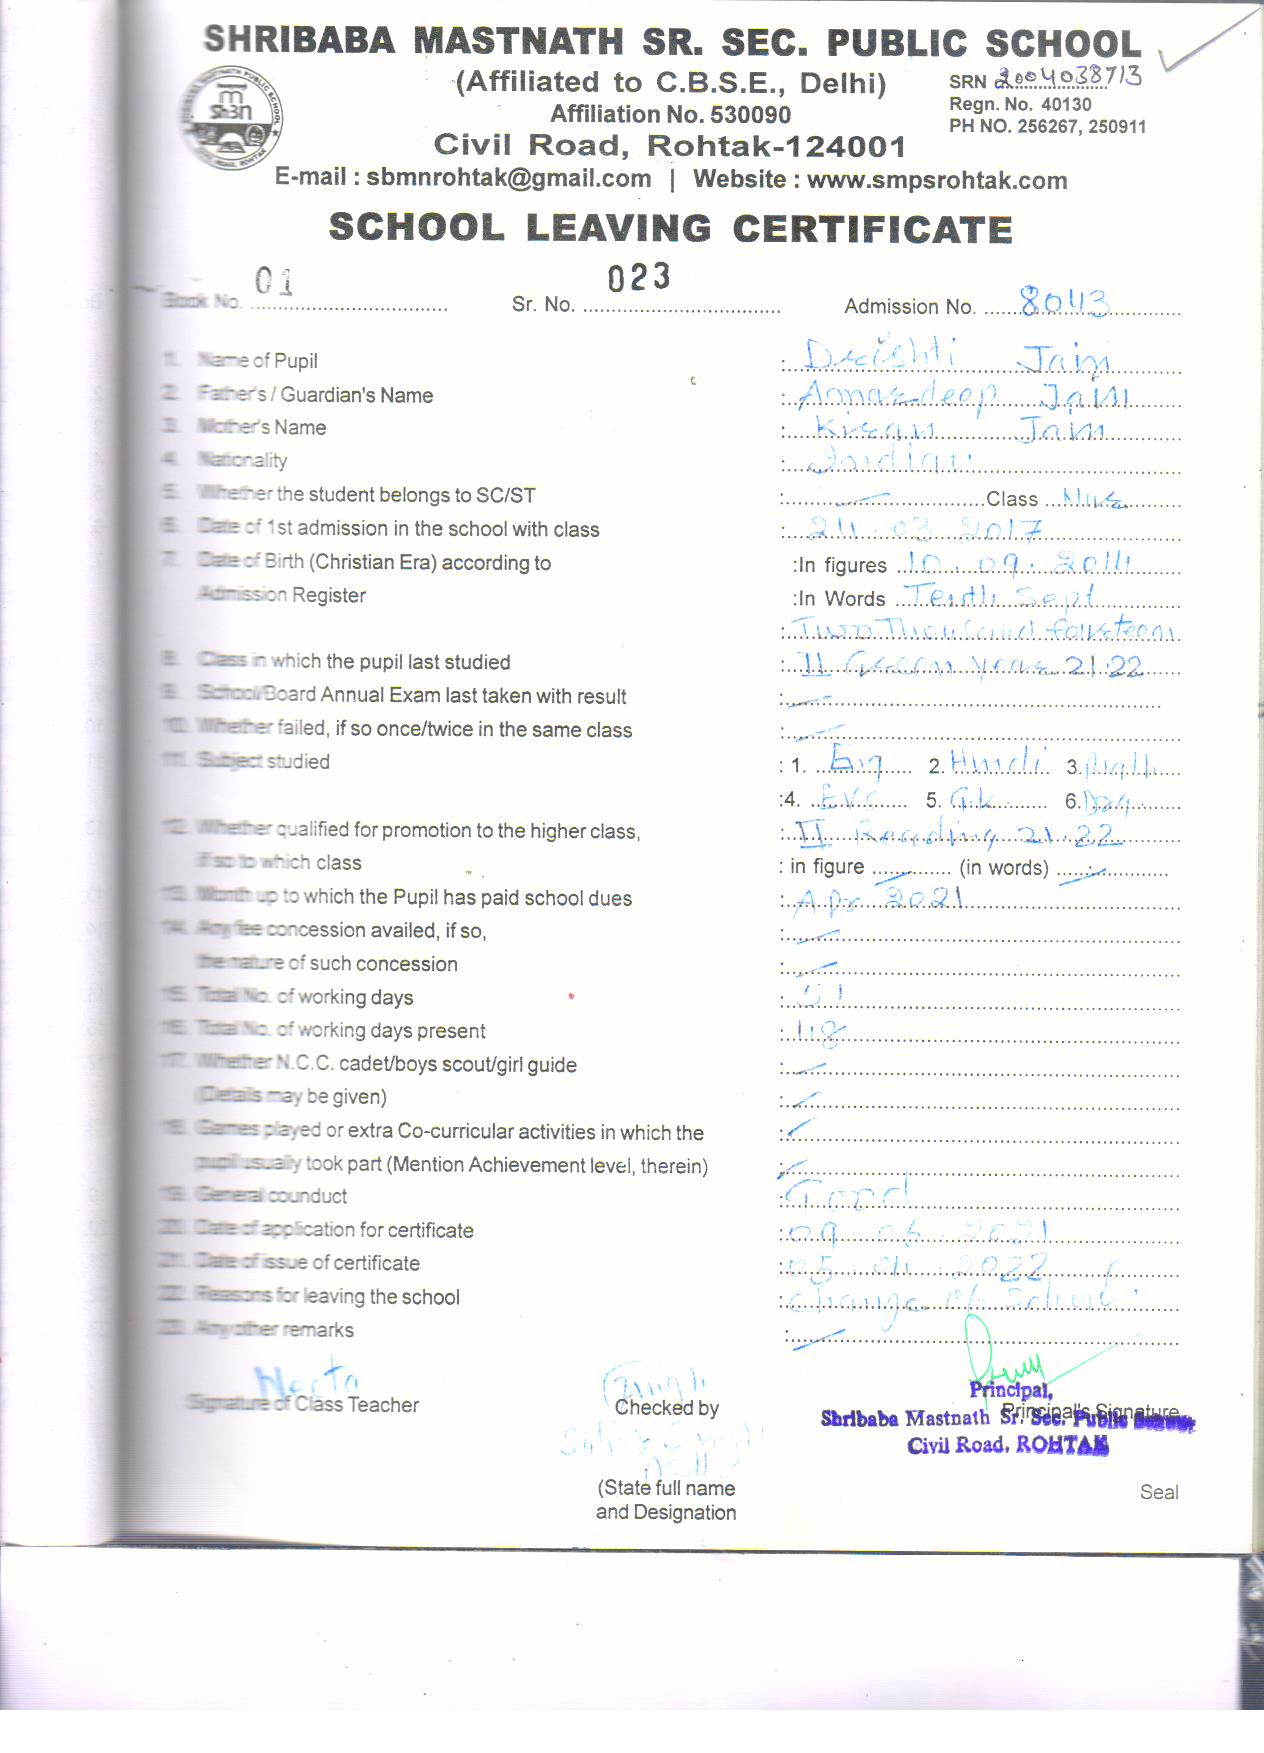 SHRIBABA MASTNATH SR. SEC. PUBLIC SCHOOL
(Affiliated to C.B.S.E., Delhi)
SRN 2004038713
Affiliation No. 530090
Regn. No. 40130
Civil Road, Rohtak-124001
PH NO. 256267, 250911
E-mail : sbmnrohtak@gmail.com | Website : www.smpsrohtak.com
SCHOOL LEAVING CERTIFICATE
Book No. 01 Sr. No. 023 Admission No. 8043
1. Name of Pupil : Drishti Jain
2. Father's / Guardian's Name : Amardeep Jain
3. Mother's Name : Kiran Jain
4. Nationality : Indian
5. Whether the student belongs to SC/ST : — Class Nur.
6. Date of 1st admission in the school with class : 24.03.2017
7. Date of Birth (Christian Era) according to :In figures 10.09.2014
Admission Register :In Words Tenth Sept
: Two Thousand fourteen
8. Class in which the pupil last studied : II Green year 21.22
9. School/Board Annual Exam last taken with result : —
10. Whether failed, if so once/twice in the same class : —
11. Subject studied : 1. Eng 2. Hindi 3. Math
:4. EVS 5. G.K. 6.
12. Whether qualified for promotion to the higher class, : II Reading 21.22
if so to which class : in figure — (in words) —
13. Month up to which the Pupil has paid school dues : Apr 2021
14. Any fee concession availed, if so, : —
the nature of such concession : —
15. Total No. of working days : 51
16. Total No. of working days present : 48
17. Whether N.C.C. cadet/boys scout/girl guide : —
(Details may be given) : —
18. Games played or extra Co-curricular activities in which the : —
pupil usually took part (Mention Achievement level, therein) : —
19. General counduct : Good
20. Date of application for certificate : 09.06.2021
21. Date of issue of certificate : 05.04.2022
22. Reasons for leaving the school : Change of School
23. Any other remarks : —
Neeta
Signature of Class Teacher Checked by Principal's Signature
Principal,
Shribaba Mastnath Sr. Sec. Public
Civil Road, ROHTAK
(State full name Seal
and Designation